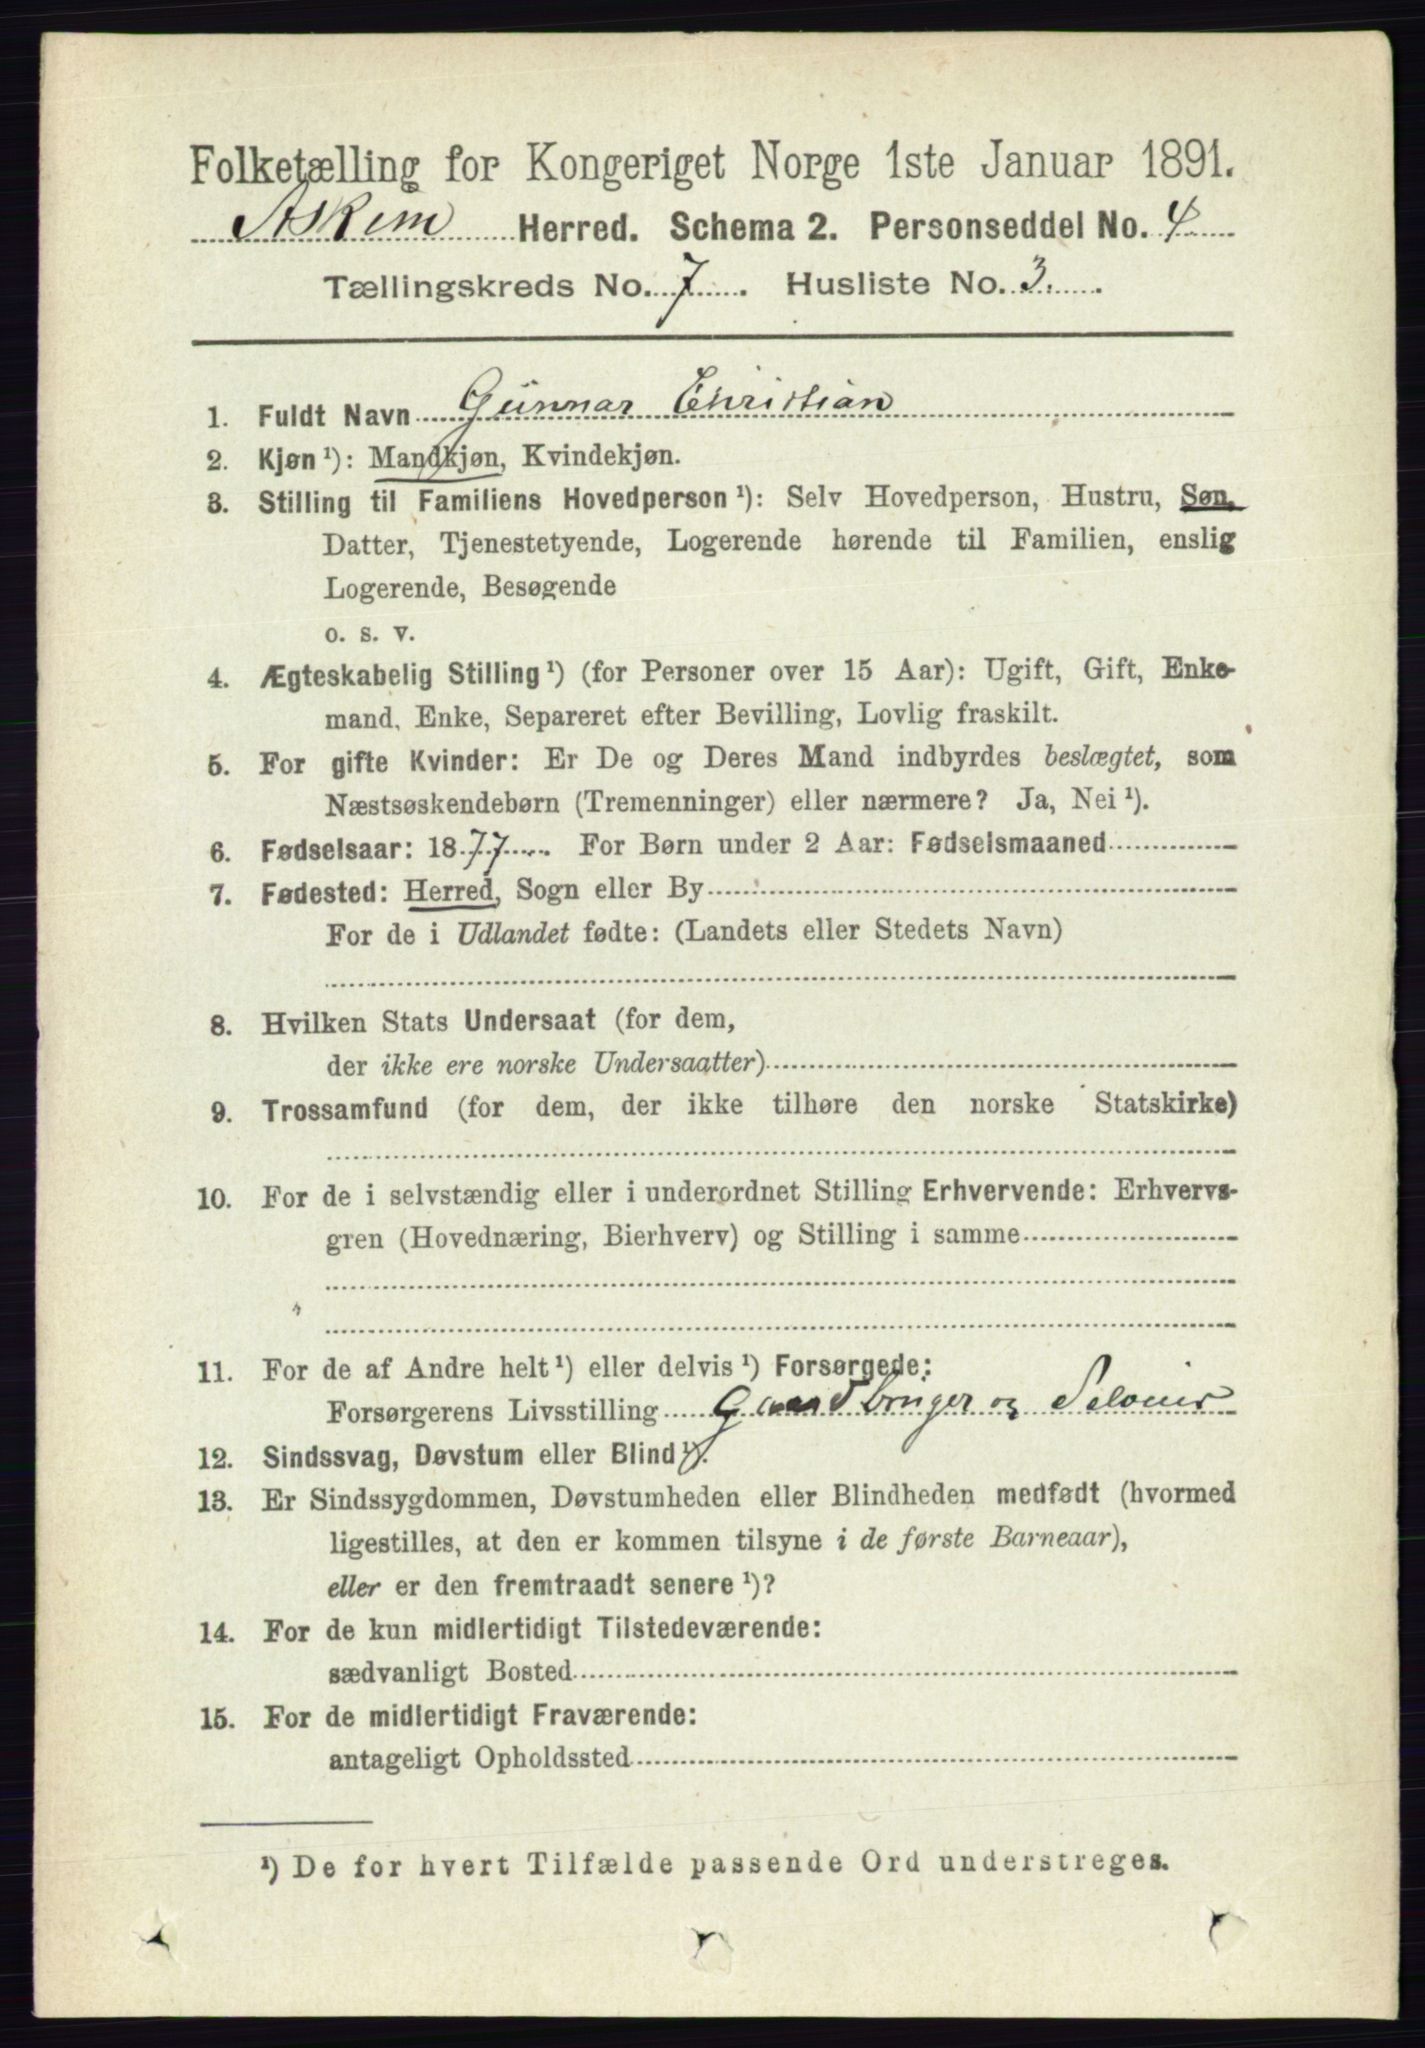 Folketælling for Kongeriget Norge 1ste Januar 1891.
Askim Herred. Schema 2. Personseddel No. 4
Tællingskreds No. 7. Husliste No. 3.
1. Fuldt Navn Gunnar Christian
2. Kjøn ¹): Mandkjøn, Kvindekjøn.
3. Stilling til Familiens Hovedperson ¹): Selv Hovedperson, Hustru, Søn,
Datter, Tjenestetyende, Logerende hørende til Familien, enslig
Logerende, Besøgende
o. s. v.
4. Ægteskabelig Stilling ¹) (for Personer over 15 Aar): Ugift, Gift, Enke-
mand, Enke, Separeret efter Bevilling, Lovlig fraskilt.
5. For gifte Kvinder: Er De og Deres Mand indbyrdes beslægtet, som
Næstsøskendebørn (Tremenninger) eller nærmere? Ja, Nei ¹).
6. Fødselsaar: 1877. For Børn under 2 Aar: Fødselsmaaned
7. Fødested: Herred, Sogn eller By
For de i Udlandet fødte: (Landets eller Stedets Navn)
8. Hvilken Stats Undersaat (for dem,
der ikke ere norske Undersaatter)
9. Trossamfund (for dem, der ikke tilhøre den norske Statskirke)
10. For de i selvstændig eller i underordnet Stilling Erhvervende: Erhvervs-
gren (Hovednæring, Bierhverv) og Stilling i samme
11. For de af Andre helt ¹) eller delvis ¹) Forsørgede:
Forsørgerens Livsstilling Gaardbruger og Seloeier
12. Sindssvag, Døvstum eller Blind ¹).
13. Er Sindssygdommen, Døvstumheden eller Blindheden medfødt (hvormed
ligestilles, at den er kommen tilsyne i de første Barneaar),
eller er den fremtraadt senere ¹)?
14. For de kun midlertidigt Tilstedeværende:
sædvanligt Bosted
15. For de midlertidigt Fraværende:
antageligt Opholdssted
¹) De for hvert Tilfælde passende Ord understreges.